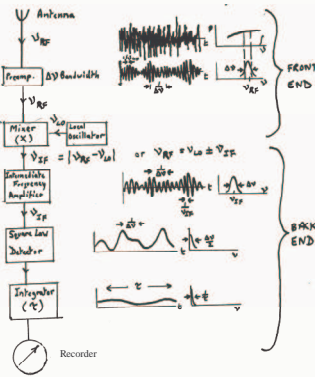 Antenna
ν_RF
Preamp. Δν Bandwidth
FRONT
END
ν_RF
ν_LO
Mixer
(X)
Local
Oscillator
ν_IF = |ν_RF - ν_LO| or ν_RF = ν_LO ± ν_IF
Intermediate
Frequency
Amplifier
ν_IF
BACK
END
Square Law
Detector
Integrator
(τ)
τ
Recorder